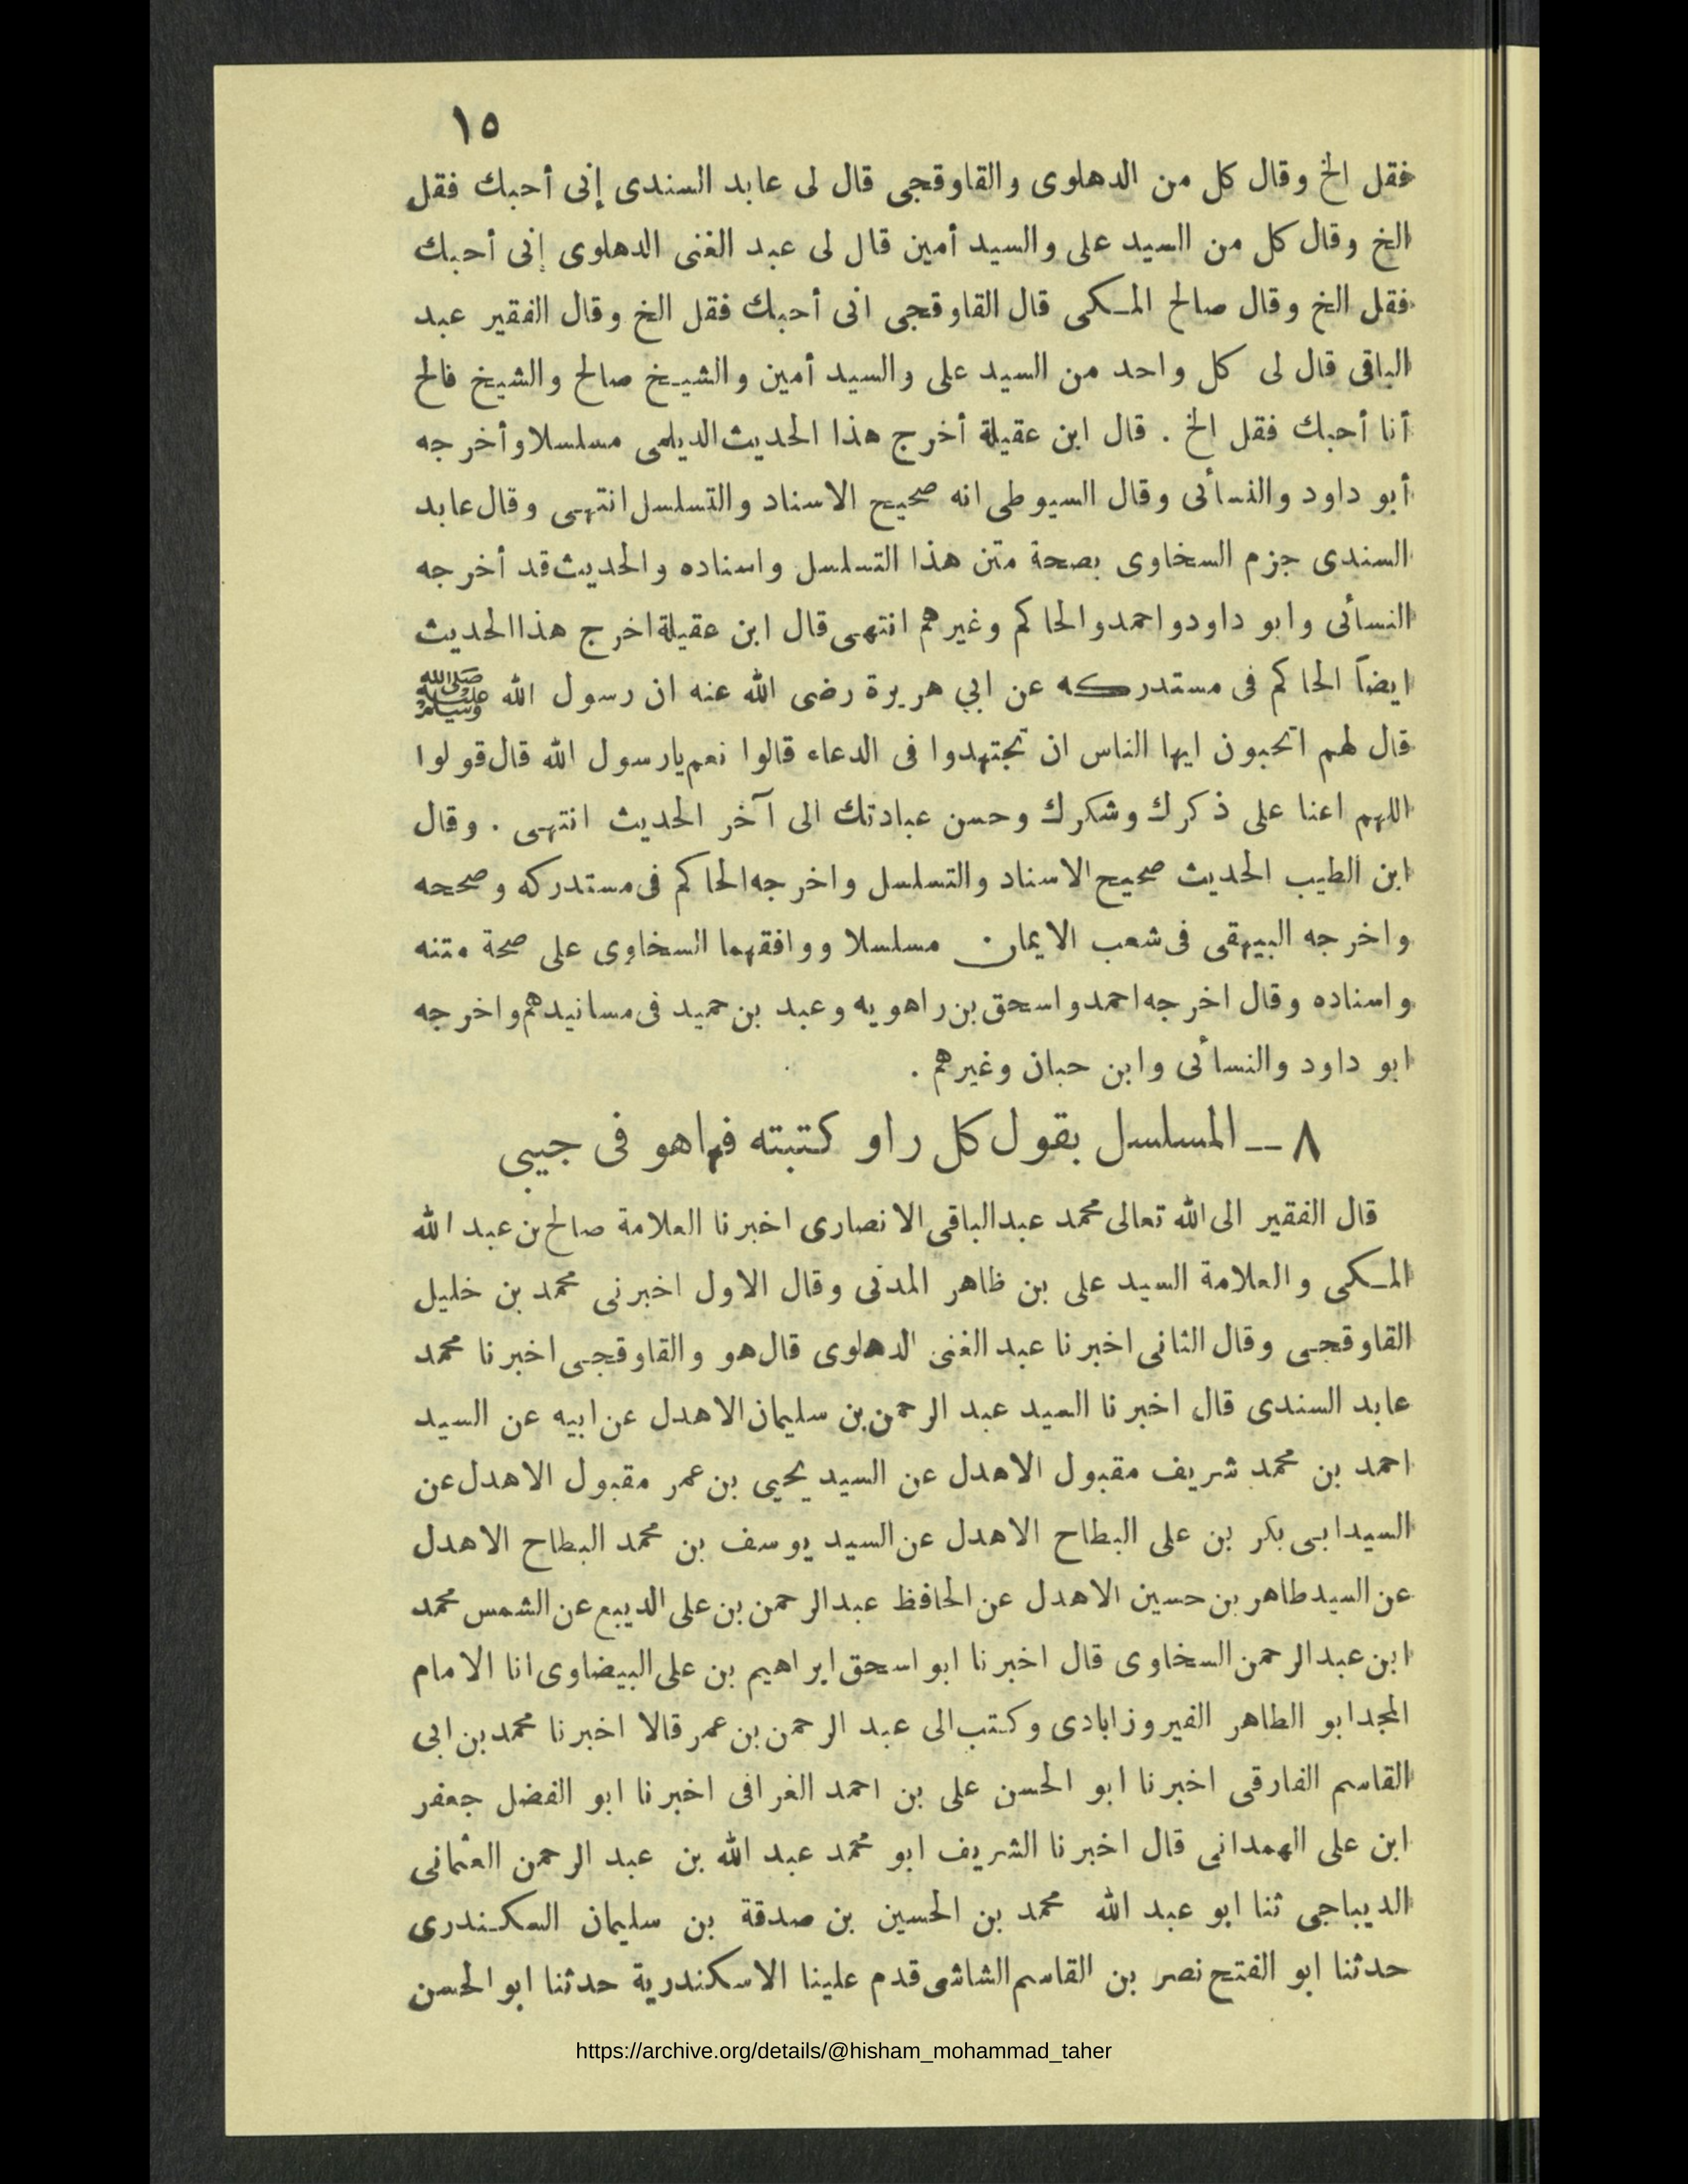 ١٥
فقل الخ وقال كل من الدهلوى والقاوقجى قال لى عابد السندى إنى أحبك فقل
الخ وقال كل من السيد على والسيد أمين قال لى عبد الغنى الدهلوى إنى أحبك
فقل الخ وقال صالح المكى قال القاوقجى انى أحبك فقل الخ وقال الفقير عبد
الباقى قال لى كل واحد من السيد على والسيد أمين والشيخ صالح والشيخ فالح
أنا أحبك فقل الخ . قال ابن عقيلة أخرج هذا الحديث الديلمى مسلسلا وأخرجه
أبو داود والنسأئى وقال السيوطى انه صحيح الاسناد والتسلسل انتهى وقال عابد
السندى جزم السخاوى بصحة متن هذا التسلسل واسناده والحديث قد أخرجه
النسائى وابو داود واحمد والحاكم وغيرهم انتهى قال ابن عقيلة اخرج هذا الحديث
ايضاً الحاكم فى مستدركه عن ابي هريرة رضى الله عنه ان رسول الله ﷺ
قال لهم اتحبون ايها الناس ان تجتهدوا فى الدعاء قالوا نعم يارسول الله قال قولوا
اللهم اعنا على ذكرك وشكرك وحسن عبادتك الى آخر الحديث انتهى . وقال
ابن الطيب الحديث صحيح الاسناد والتسلسل واخرجه الحاكم فى مستدركه وصححه
واخرجه البيهقى فى شعب الايمان مسلسلا ووافقهما السخاوى على صحة متنه
واسناده وقال اخرجه احمد واسحق بن راهويه وعبد بن حميد فى مسانيدهم واخرجه
ابو داود والنسأئى وابن حبان وغيرهم .
٨ ــ المسلسل بقول كل راو كتبته فهاهو فى جيبى
قال الفقير الى الله تعالى محمد عبد الباقى الانصارى اخبرنا العلامة صالح بن عبد الله
المكى والعلامة السيد على بن ظاهر المدنى وقال الاول اخبرنى محمد بن خليل
القاوقجى وقال الثانى اخبرنا عبد الغنى الدهلوى قال هو والقاوقجى اخبرنا محمد
عابد السندى قال اخبرنا السيد عبد الرحمن بن سليمان الاهدل عن ابيه عن السيد
احمد بن محمد شريف مقبول الاهدل عن السيد يحيى بن عمر مقبول الاهدل عن
السيد ابى بكر بن على البطاح الاهدل عن السيد يوسف بن محمد البطاح الاهدل
عن السيد طاهر بن حسين الاهدل عن الحافظ عبد الرحمن بن على الديبع عن الشمس محمد
ابن عبد الرحمن السخاوى قال اخبرنا ابو اسحق ابراهيم بن على البيضاوى انا الامام
المجد ابو الطاهر الفيروزابادى وكتب الى عبد الرحمن بن عمر قالا اخبرنا محمد بن ابى
القاسم الفارقى اخبرنا ابو الحسن على بن احمد الغرافى اخبرنا ابو الفضل جعفر
ابن على الهمدانى قال اخبرنا الشريف ابو محمد عبد الله بن عبد الرحمن العثمانى
الديباجى ثنا ابو عبد الله محمد بن الحسين بن صدقة بن سليمان السكندرى
حدثنا ابو الفتح نصر بن القاسم الشاشى قدم علينا الاسكندرية حدثنا ابو الحسن
https://archive.org/details/@hisham_mohammad_taher